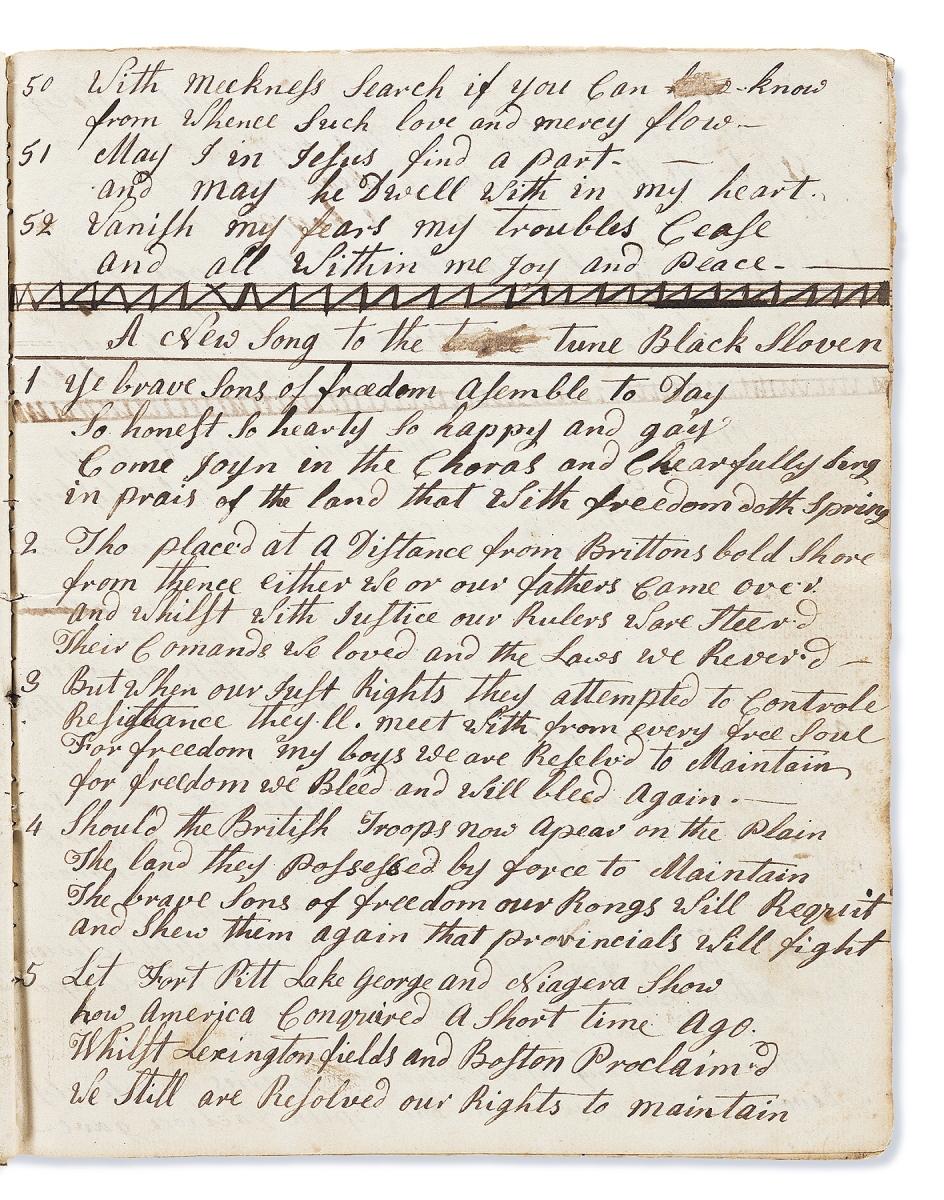 50 With meekness Search if you Can know
from Whence Such love and mercy flow -
51 May I in Jesus find a part -
and may he Dwell With in my heart.
52 Vanish my fears my troubles Cease
and all Within me Joy and Peace -
A New Song to the tune Black Sloven
1 Ye brave Sons of freedom Asemble to Day
So honest So hearty So happy and gay
Come Joyn in the Choras and Chearfully Sing
in prais of the land that With freedom doth Spring
2 Tho plac'd at A Distance from Brittons bold Shore
from thence either We or our fathers Came over
and Whilst With Justice our Rulers Ware Steer'd
Their Comands We loved and the Laws we Rever'd -
3 But When our Just Rights they attempted to Controle
Resistance they'll. meet With from every free Soul
For freedom my boys We are Resolv'd to Maintain
for freedom we Bleed and Will bleed Again. -
4 Should the British Troops now Apear on the Plain
The land they possessed by force to Maintain
The brave Sons of freedom our Rongs Will Requit
and Shew them again that provincials Will fight
5 Let Fort Pitt Lake George and Niagera Show
how America Conquired A Short time Ago.
Whilst Lexington fields and Boston Proclaim'd
We Still are Resolved our Rights to maintain